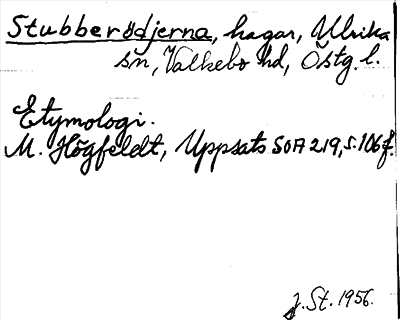 Stubberödjerna, hagar, Ulrika
sn, Valkebo hd, Östg. l.
Etymologi.
M. Högfeldt, Uppsats SOA 219, s. 106 f.
J. St. 1956.